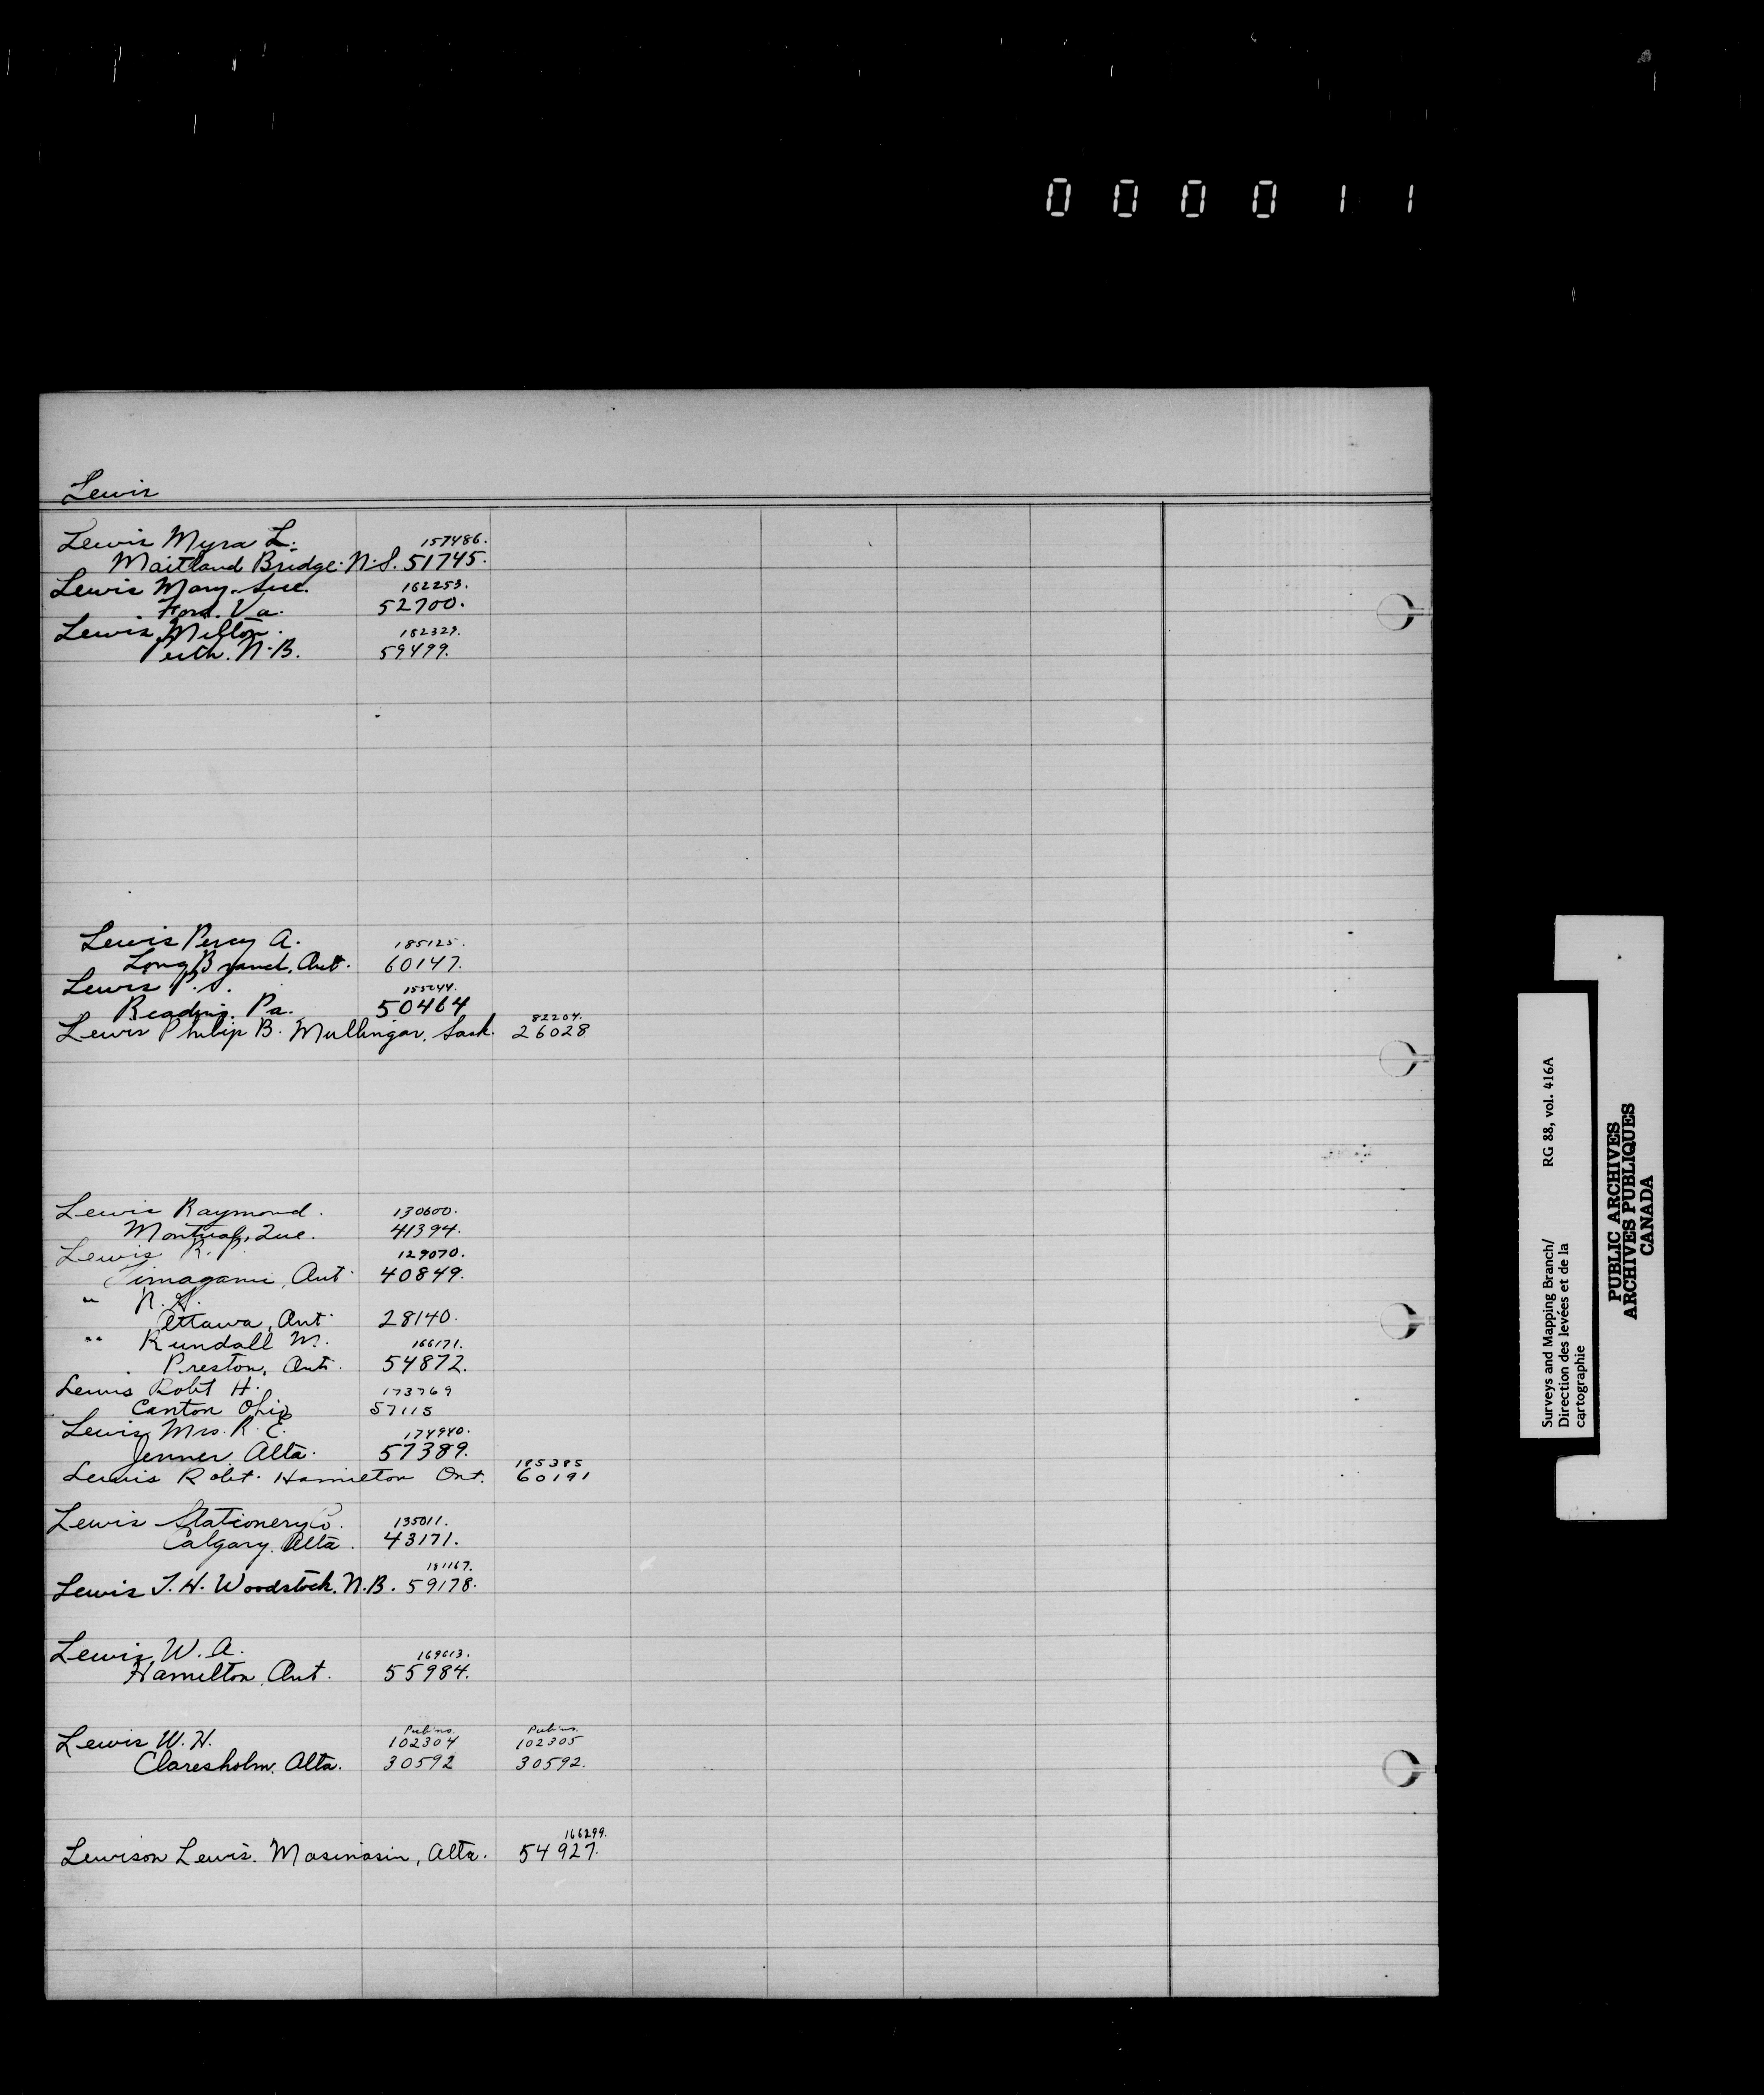 000011
Lewis
Lewis Myra L. 157486.
Maitland Bridge. N.S. 51745.
Lewis Mary Sue. 162253.
Ford. Va. 52700.
Lewis, Milton. 182329.
Perth. N.B. 59499.
Lewis Percy A. 185125.
Long Branch, Ont. 60147.
Lewis P.S. 155044.
Reading. Pa. 50464
82204.
Lewis Philip B. Mullingar, Sask. 26028
Lewis Raymond. 130600.
Montreal, Que. 41394.
Lewis R. P. 129070.
Timagami, Ont. 40849.
" R. G.
Ottawa, Ont. 28140.
" Rundall M. 166171.
Preston, Ont. 54872.
Lewis Robt H. 173769
Canton Ohio 57115
Lewis, Mrs. R. E. 174940.
Jenner. Alta. 57389.
185395
Lewis Robt. Hamilton Ont. 60191
Lewis Stationery Co. 135011.
Calgary. Alta. 43171.
181167.
Lewis T. H. Woodstock. N.B. 59178.
Lewis, W. A. 169613.
Hamilton, Ont. 55984.
Pub. no. Pub. no.
Lewis W. H. 102304 102305
Claresholm. Alta. 30592 30592.
166299.
Lewison Lewis. Masinasin, Alta. 54927.
Surveys and Mapping Branch/ RG 88, vol. 416A
Direction des levées et de la
cartographie
PUBLIC ARCHIVES
ARCHIVES PUBLIQUES
CANADA